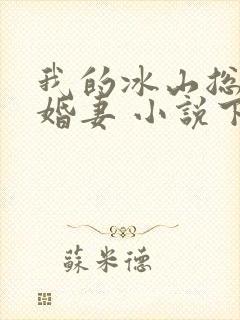 我的冰山总
婚妻 小說下
蘇米德